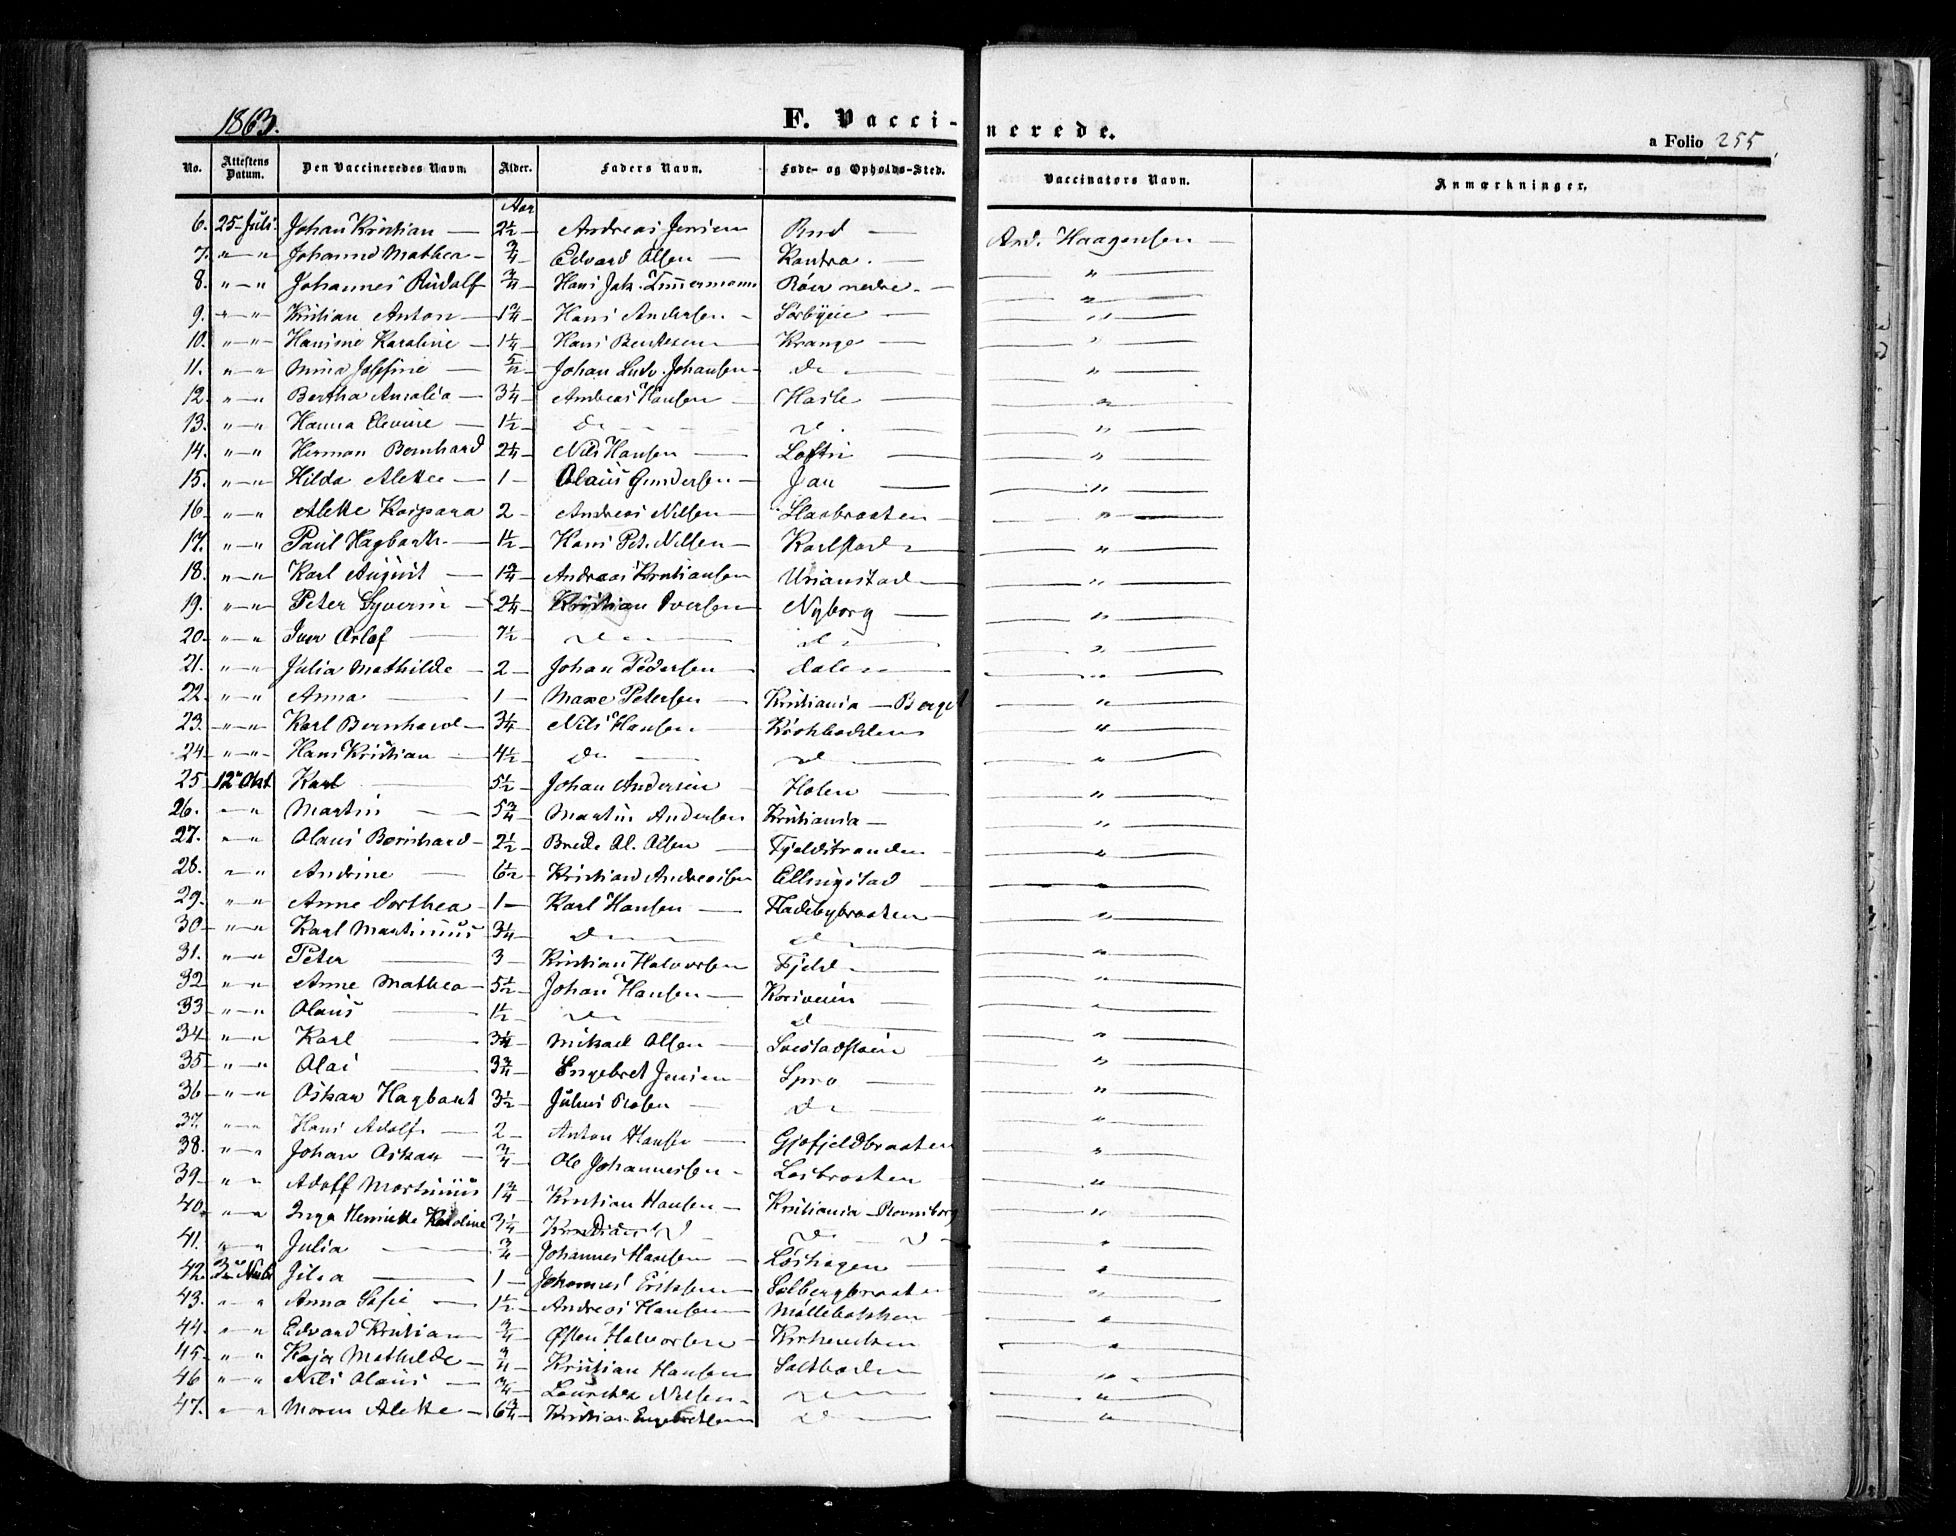 1863.
F. Vacci-
nerede.
a Folio 255
No. Attestens Datum. Den Vaccineredes Navn. Alder. Faders Navn. Føde- og Opholds-Sted. Vaccinators Navn. Anmærkninger.
Aar
6. 25 Juli Johan Kristian — 2½ Andreas Jensen Rud — And. Haagensen —
7. " — " Johanne Mathea — ¾ Edvard Olsen — Kantra. — "
8. " — " Johannes Rudolf ¾ Hans Jak. Zimmermann Røer nedre. — "
9. " — " Kristian Anton — 1¾ — Hans Andersen — Sørbyeie — "
10. " — " Hansine Karoline — 1¼ — Hans Bentesen — Krange — "
11. " — " Mina Josefine — Johan Ludv. Johansen — do — "
12. " — " Bertha Amalia — 3¼ — Andreas Hansen — Hasle — "
13. " — " Hanna Elevine — 1½ — do — do — "
14. " — " Herman Bernhard 2¼ — Nils Hansen — Loftu — "
15. " — " Hilda Alette — 1 — Olaus Gundersen — Jau — "
16. " — " Alette Kaspara 2 — Andreas Nilsen — Slaabraaten — "
17. " — " Paul Hagbarth — 1½ Hans Pet. Nilsen — Karlstad — "
18. " — " Karl August — 1¾ — Andreas Kristiansen Urianstad — "
19. " — " Peter Syverin — 2¼ — Kristian Iversen — Nyborg — "
20. " — " Iver Orlaf — 7½ — do — do — "
21. " — " Julia Mathilde — 2 — Johan Pedersen — Dalen — "
22. " — " Anna — 1 — Maxe Petersen — Kristiania — Berget "
23. " — " Karl Bernhard — 3¼ — Nils Hansen — "
24. " — " Hans Kristian — 4½ — do — do — "
25. 12te Okt Karl — 5½ — Johan Andersen — Holen — "
26. " — " Martin — 5¾ — Martin Andersen Kristiania — "
27. " — " Olaus Bernhard — 2½ — Brede Ol. Olsen — Fjeldstranden — "
28. " — " Andrine — 6½ — Kristian Andreassen Ellingstad — "
29. " — " Anne Dorthea — 1 — Karl Hansen — Fladebybraaten — "
30. " — " Karl Martinius 3¼ — do — do — "
31. " — " Peter — 3 — Kristian Halvorsen Fjeld — "
32. " — " Anne Mathea — 5½ — Johan Hansen — Korsveien — "
33. " — " Olaus — 1½ — do — do — "
34. " — " Karl — 3¼ — Mikael Olsen — "
35. " — " Olai — 3¾ — Engebret Jensen — Spro — "
36. " — " Oskar Hagbart 3½ — Julius Olsen — do — "
37. " — " Hans Adolf — 2 — Anton Hansen — Gjøfjeldbraaten "
38. " — " Johan Oskar — ¾ — Ole Johannessen — Løsbraaten — "
39. " — " Adolf Martinius 1¾ — Kristian Hansen — Kristiania — Ravnsborg "
40. " — " Inga Henriette Karoline 3¼ — do — do "
41. " — " Julia — ¾ — Johannes Hansen — Løshagen — "
42. 3die Novbr Jilia — 1 — Johannes Eriksen — Solbergbraaten "
43. " — " Anna Sofie — 1½ — Andreas Hansen — Møllebakken "
44. " — " Edvard Kristian — ¾ — Østen Halvorsen — "
45. " — " Kaja Mathilde — ¾ Kristian Hansen Saltboden — "
46. " — " Nils Olaus — ¾ — Lauritz Nilsen — do — "
47. " — " Maren Alette — 6¾ — Kristian Engebretsen do — "